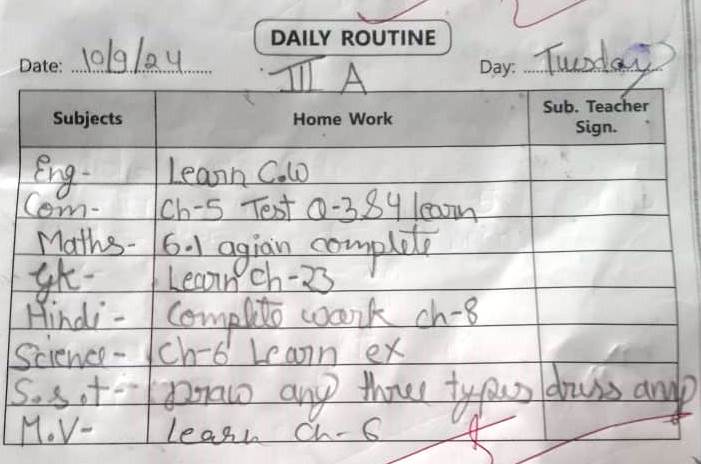 DAILY ROUTINE
Date: 10/9/24 Day: Tuesday
III A
Subjects Home Work Sub. Teacher Sign.
Eng- Learn C.W
Com- Ch-5 Test Q-3&4 learn
Maths- 6.1 agian complete
GK- Learn Ch-23
Hindi- Complete wark ch-8
Science- Ch-6 Learn ex
S.s.t- Draw any three types dress and
M.V- Learn Ch-6